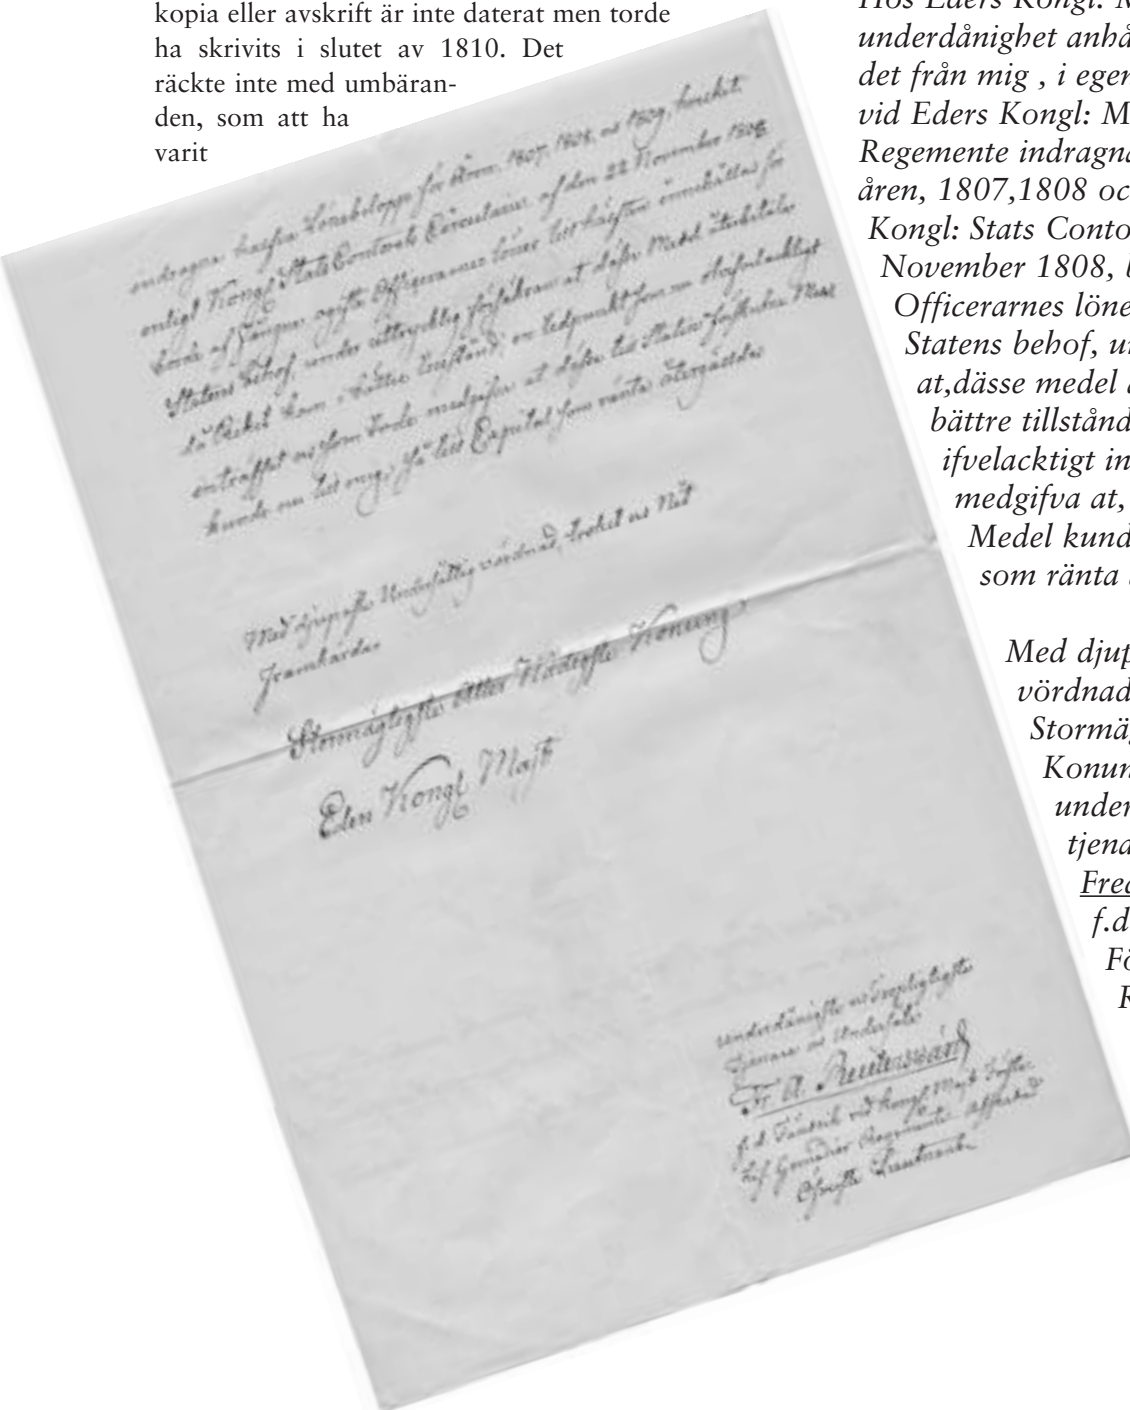 kopia eller avskrift är inte daterat men torde
ha skrivits i slutet av 1810. Det
räckte inte med umbäran-
den, som att ha
varit
indragna halfva Lönebelopp för Åren 1807, 1808, och 1809, hvilket
enligt Kongl State Contorets Circulaire af den 22 November 1808
borde af fångne Officerarnes löner till hälften innehållas för
Statens behof, under uttrycklig försäkran at dessa Medel återbetalas
då Riket kom i bättre tillstånd; en tidpunkt som nu
inträffat och som torde medgifva at desse till Staten Medel
kunde nu till mig, så till Capital som ränta återgäldas
Med djupaste Undersåtlig vördnad, trohet och Nit
framhärdar
Stormägtigste Aller Nådigste Konung
Eders Kongl Majts
underdånigste och tropligtigste
tjenare och Undersåte
Fr. A. Reuterswärd
f. d. Fändrik vid Kongl. Majts
Grenadier Regemente
Lieutenant
Hos Eders Kongl: M
underdånighet anhå
det från mig , i egen
vid Eders Kongl: M
Regemente indragna
åren, 1807,1808 oc
Kongl: Stats Conto
November 1808, b
Officerarnes löne
Statens behof, un
at,dässe medel
bättre tillstånd
ifvelacktigt in
medgifva at,
Medel kund
som ränta
Med djup
vördnad
Stormäg
Konun
under
tjena
Fred
f.d
Fö
R